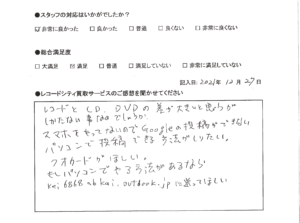 ●スタッフの対応はいかがでしたか？
☑非常に良かった □良かった □普通 □良くない □非常に良くない
●総合満足度
□大満足 ☑満足 □普通 □満足していない □非常に満足していない
記入日: 2021年12月27日
●レコードシティ買取サービスのご感想を聞かせてください
レコードと CD、DVDの差が大きいと思うが
しかたない事なのでしょうか
スマホをもってないのでGoogleの投稿ができない
パソコンで投稿できる方法がしりたい。
クオカードがほしい。
もしパソコンでやる方法があるなら
に送ってほしい